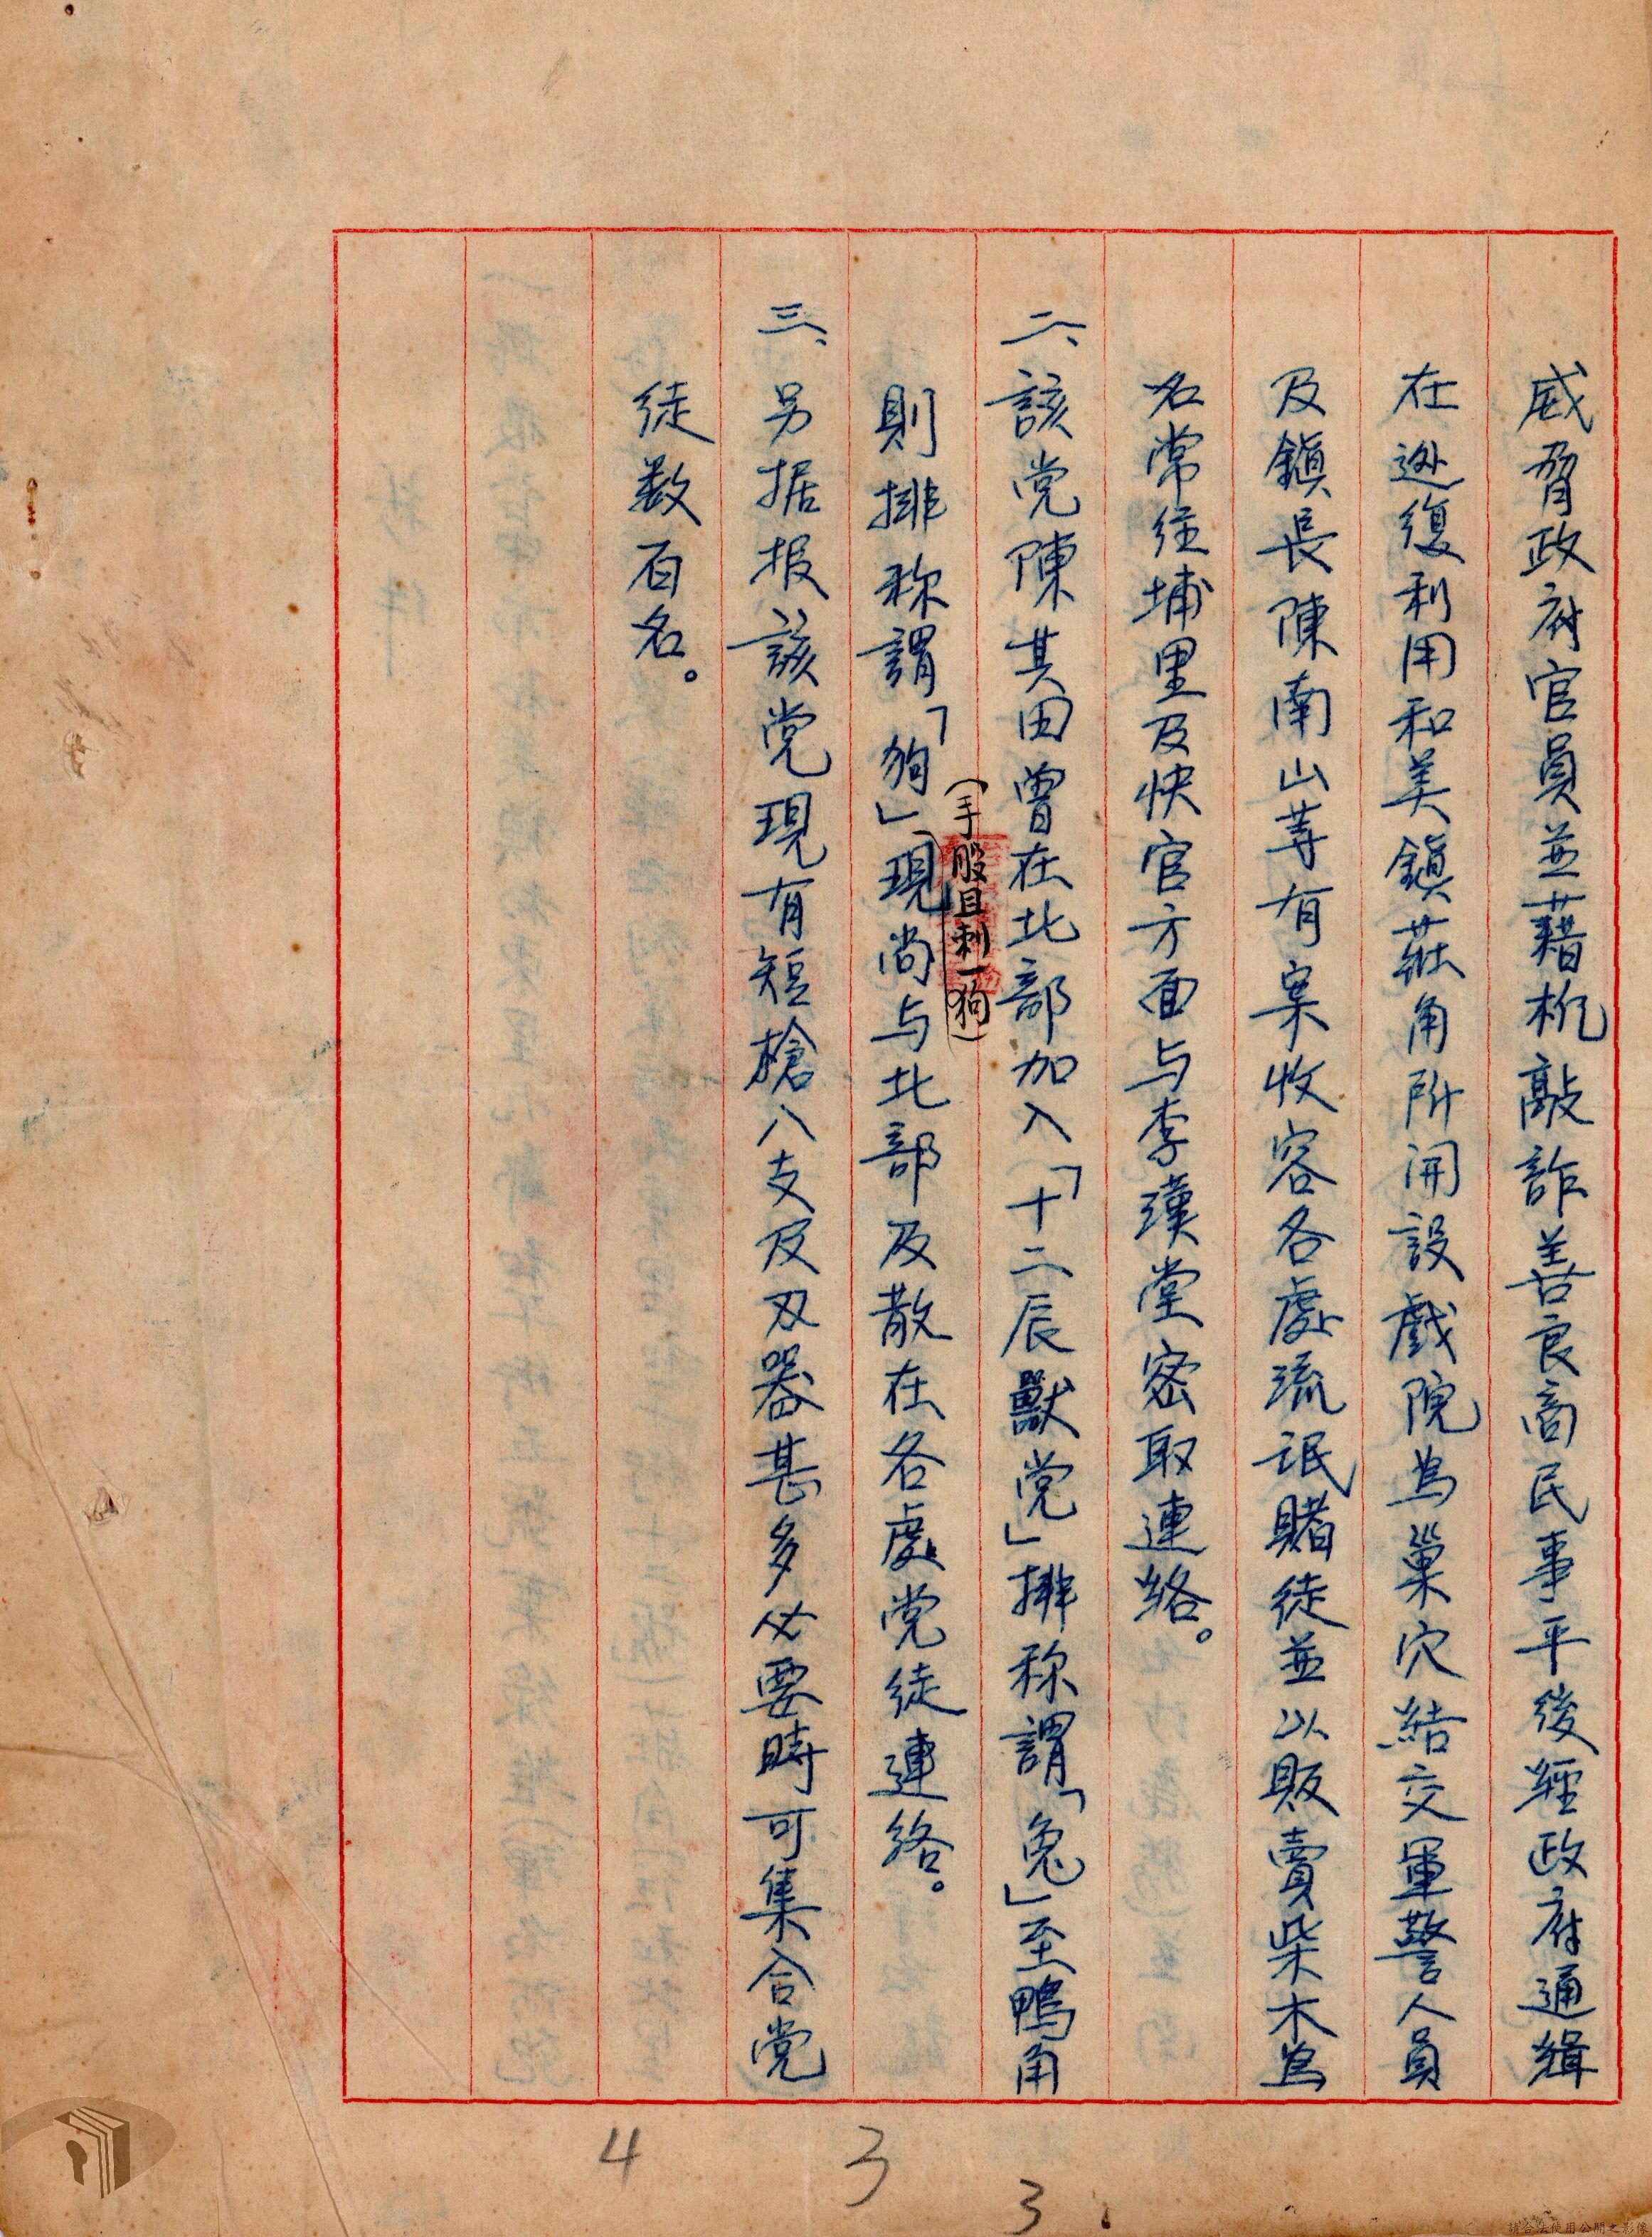 威脅政府官員並藉机敲詐善良商民事平後經政府通緝
在逃復利用和美鎮莊角所開設戲院為巢穴結交軍警人員
及鎮長陳南山等有案收容各處流氓賭徒並以販賣柴木為
名常往埔里及快官方面与李漢堂密取連絡。
二、該党陳其田曾在北部加入「十二辰獸党」排称謂「兔」至鴨角
(手股且刺一狗)
則排称謂「狗」現尚与北部及散在各處党徒連絡。
三、另据报該党現有短槍八支及刄器甚多必要時可集合党
徒数百名。
4
3
3
請合法使用公開之影像